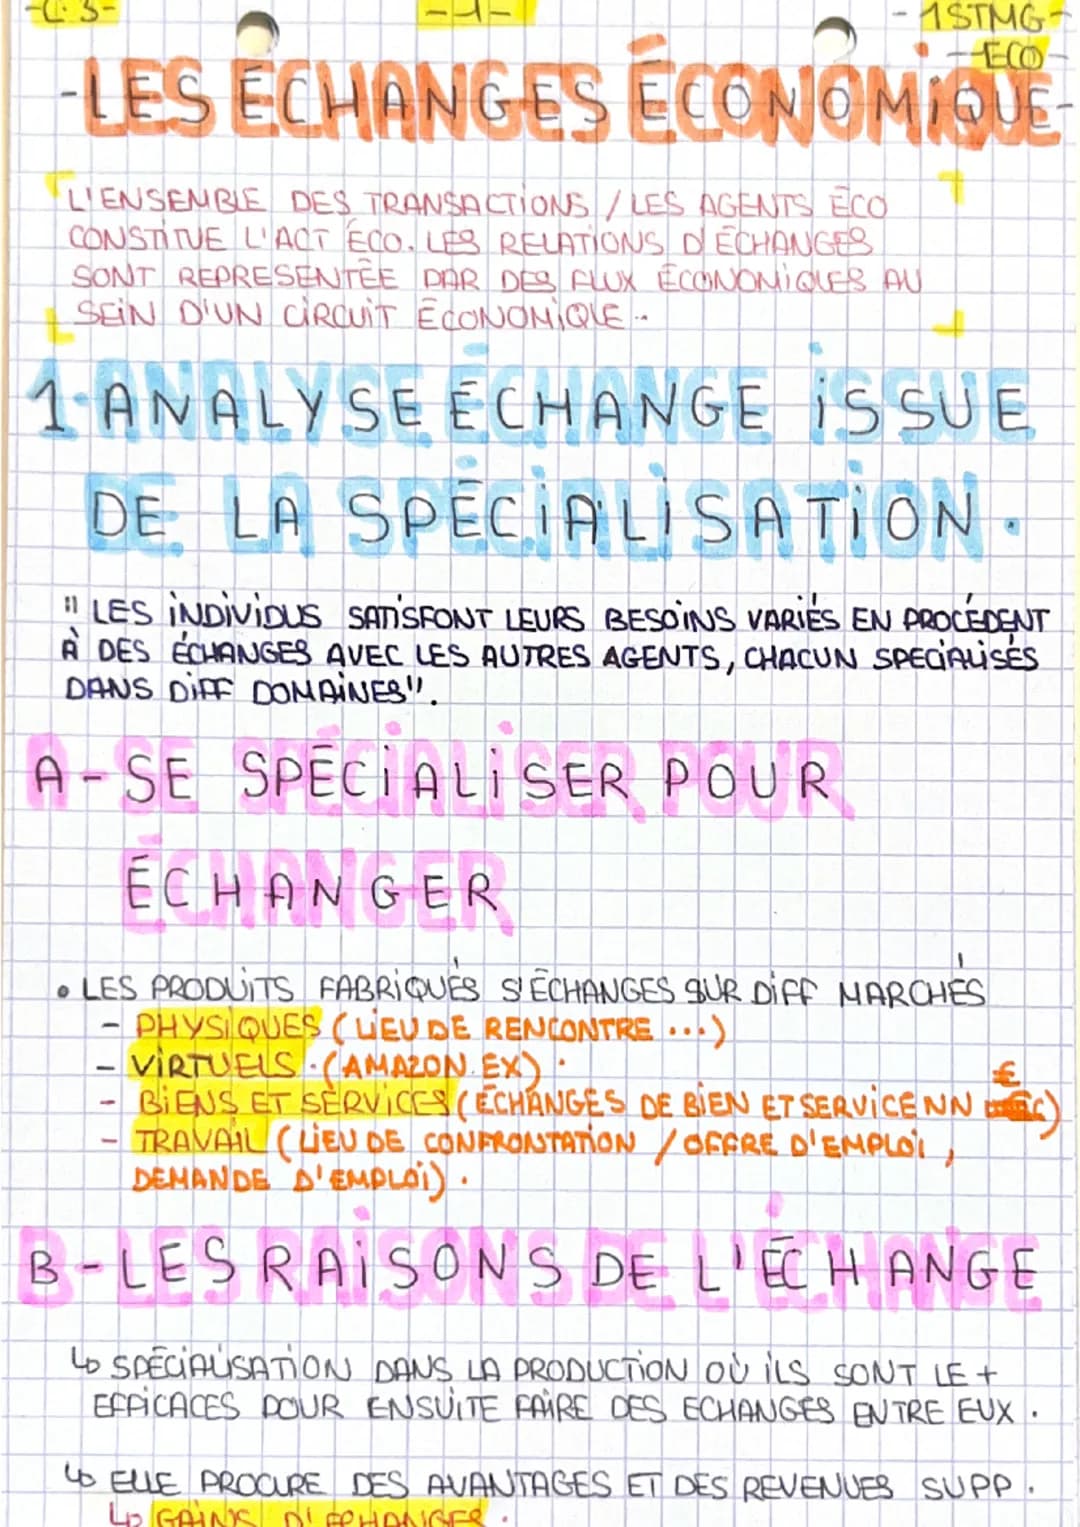 -C: 3-
-1-
-1STMG-
-ECO-
-LES ÉCHANGES ÉCONOMIQUE-
L'ENSEMBLE DES TRANSACTIONS / LES AGENTS ÉCO
CONSTITUE L'ACT ÉCO. LES RELATIONS D'ÉCHANGES
SONT REPRESENTÉE PAR DES FLUX ÉCONOMIQUES AU
SEIN D'UN CIRCUIT ÉCONOMIQUE..
1-ANALYSE ÉCHANGE ISSUE
DE LA SPÉCIALISATION.
"LES INDIVIDUS SATISFONT LEURS BESOINS VARIÉS EN PROCÉDENT
À DES ÉCHANGES AVEC LES AUTRES AGENTS, CHACUN SPECIALISÉS
DANS DIFF DOMAINES".
A-SE SPÉCIALISER POUR
ÉCHANGER
• LES PRODUITS FABRIQUÉS S'ÉCHANGES SUR DIFF MARCHÉS
- PHYSIQUES (LIEU DE RENCONTRE ...)
- VIRTUELS.(AMAZON.EX).
€
- BIENS ET SERVICES (ÉCHANGES DE BIEN ET SERVICE NN )
- TRAVAIL (LIEU DE CONFRONTATION / OFFRE D'EMPLOI,
DEMANDE D'EMPLOI).
B-LES RAISONS DE L'ÉCHANGE
↳ SPÉCIALISATION DANS LA PRODUCTION OÙ ILS SONT LE +
EFFICACES POUR ENSUITE FAIRE DES ECHANGES ENTRE EUX.
↳ ELLE PROCURE DES AVANTAGES ET DES REVENUES SUPP.
↳ GAINS D'ECHANGER.